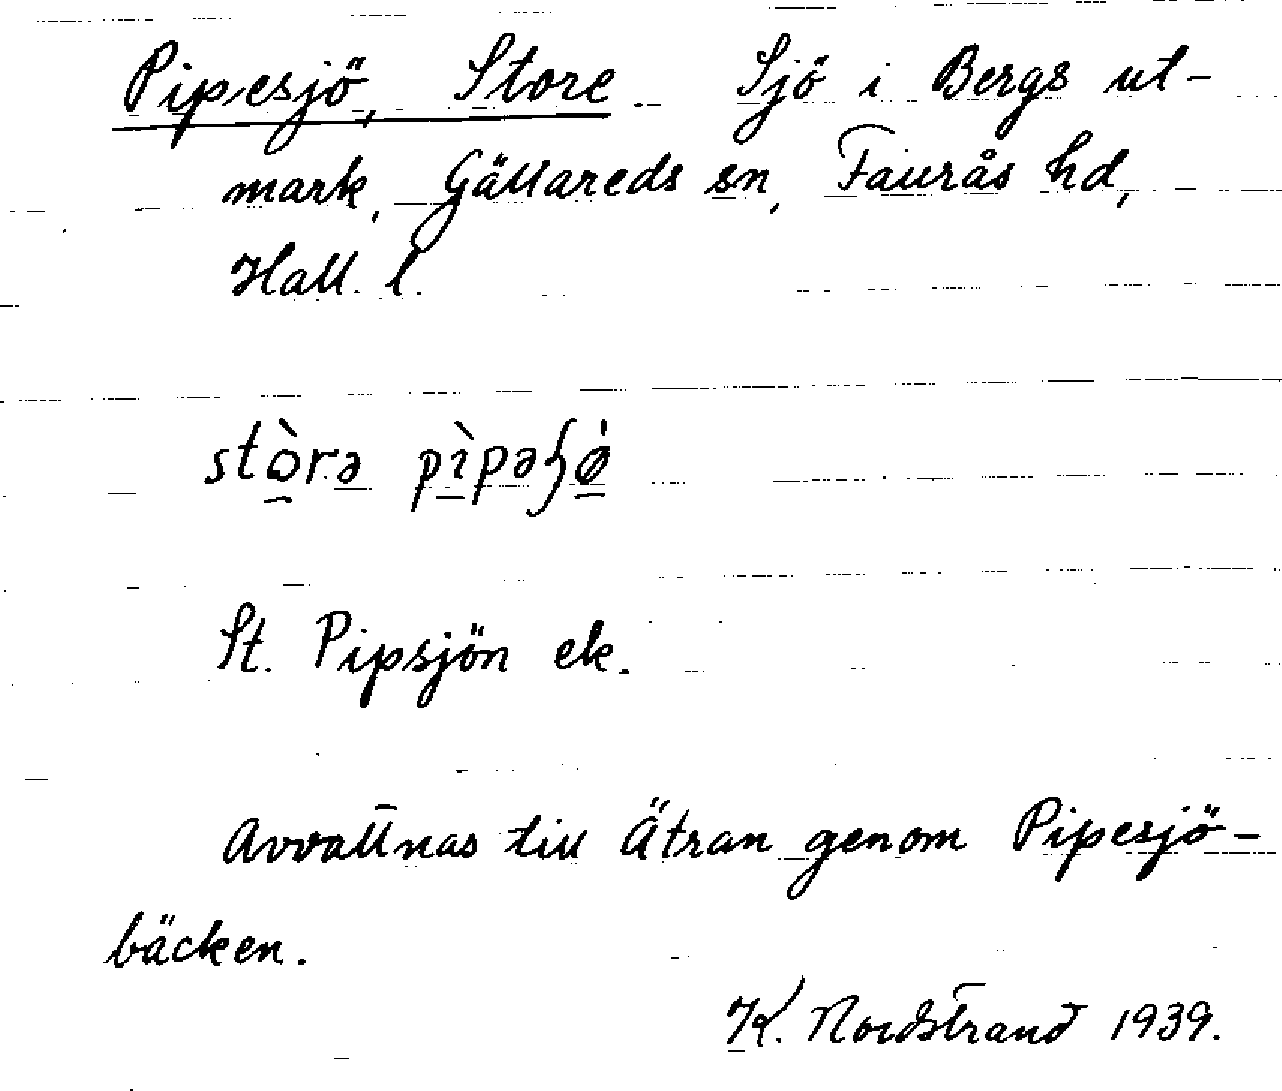 Pipesjö, Store. Sjö i Bergs ut-
mark, Gällareds sn, Faurås hd,
Hall. l.
stò̱rə pì̱pəʃø̱̇
St. Pipsjön ek.
Avvattnas till Ätran genom Pipesjö-
bäcken.
K. Nordstrand 1939.